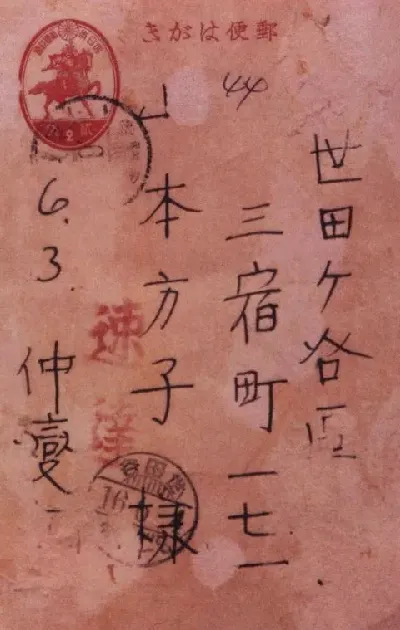 郵便はがき
世田ケ谷区
三宿町一七一
山本方子様
速達
6.3.
仲